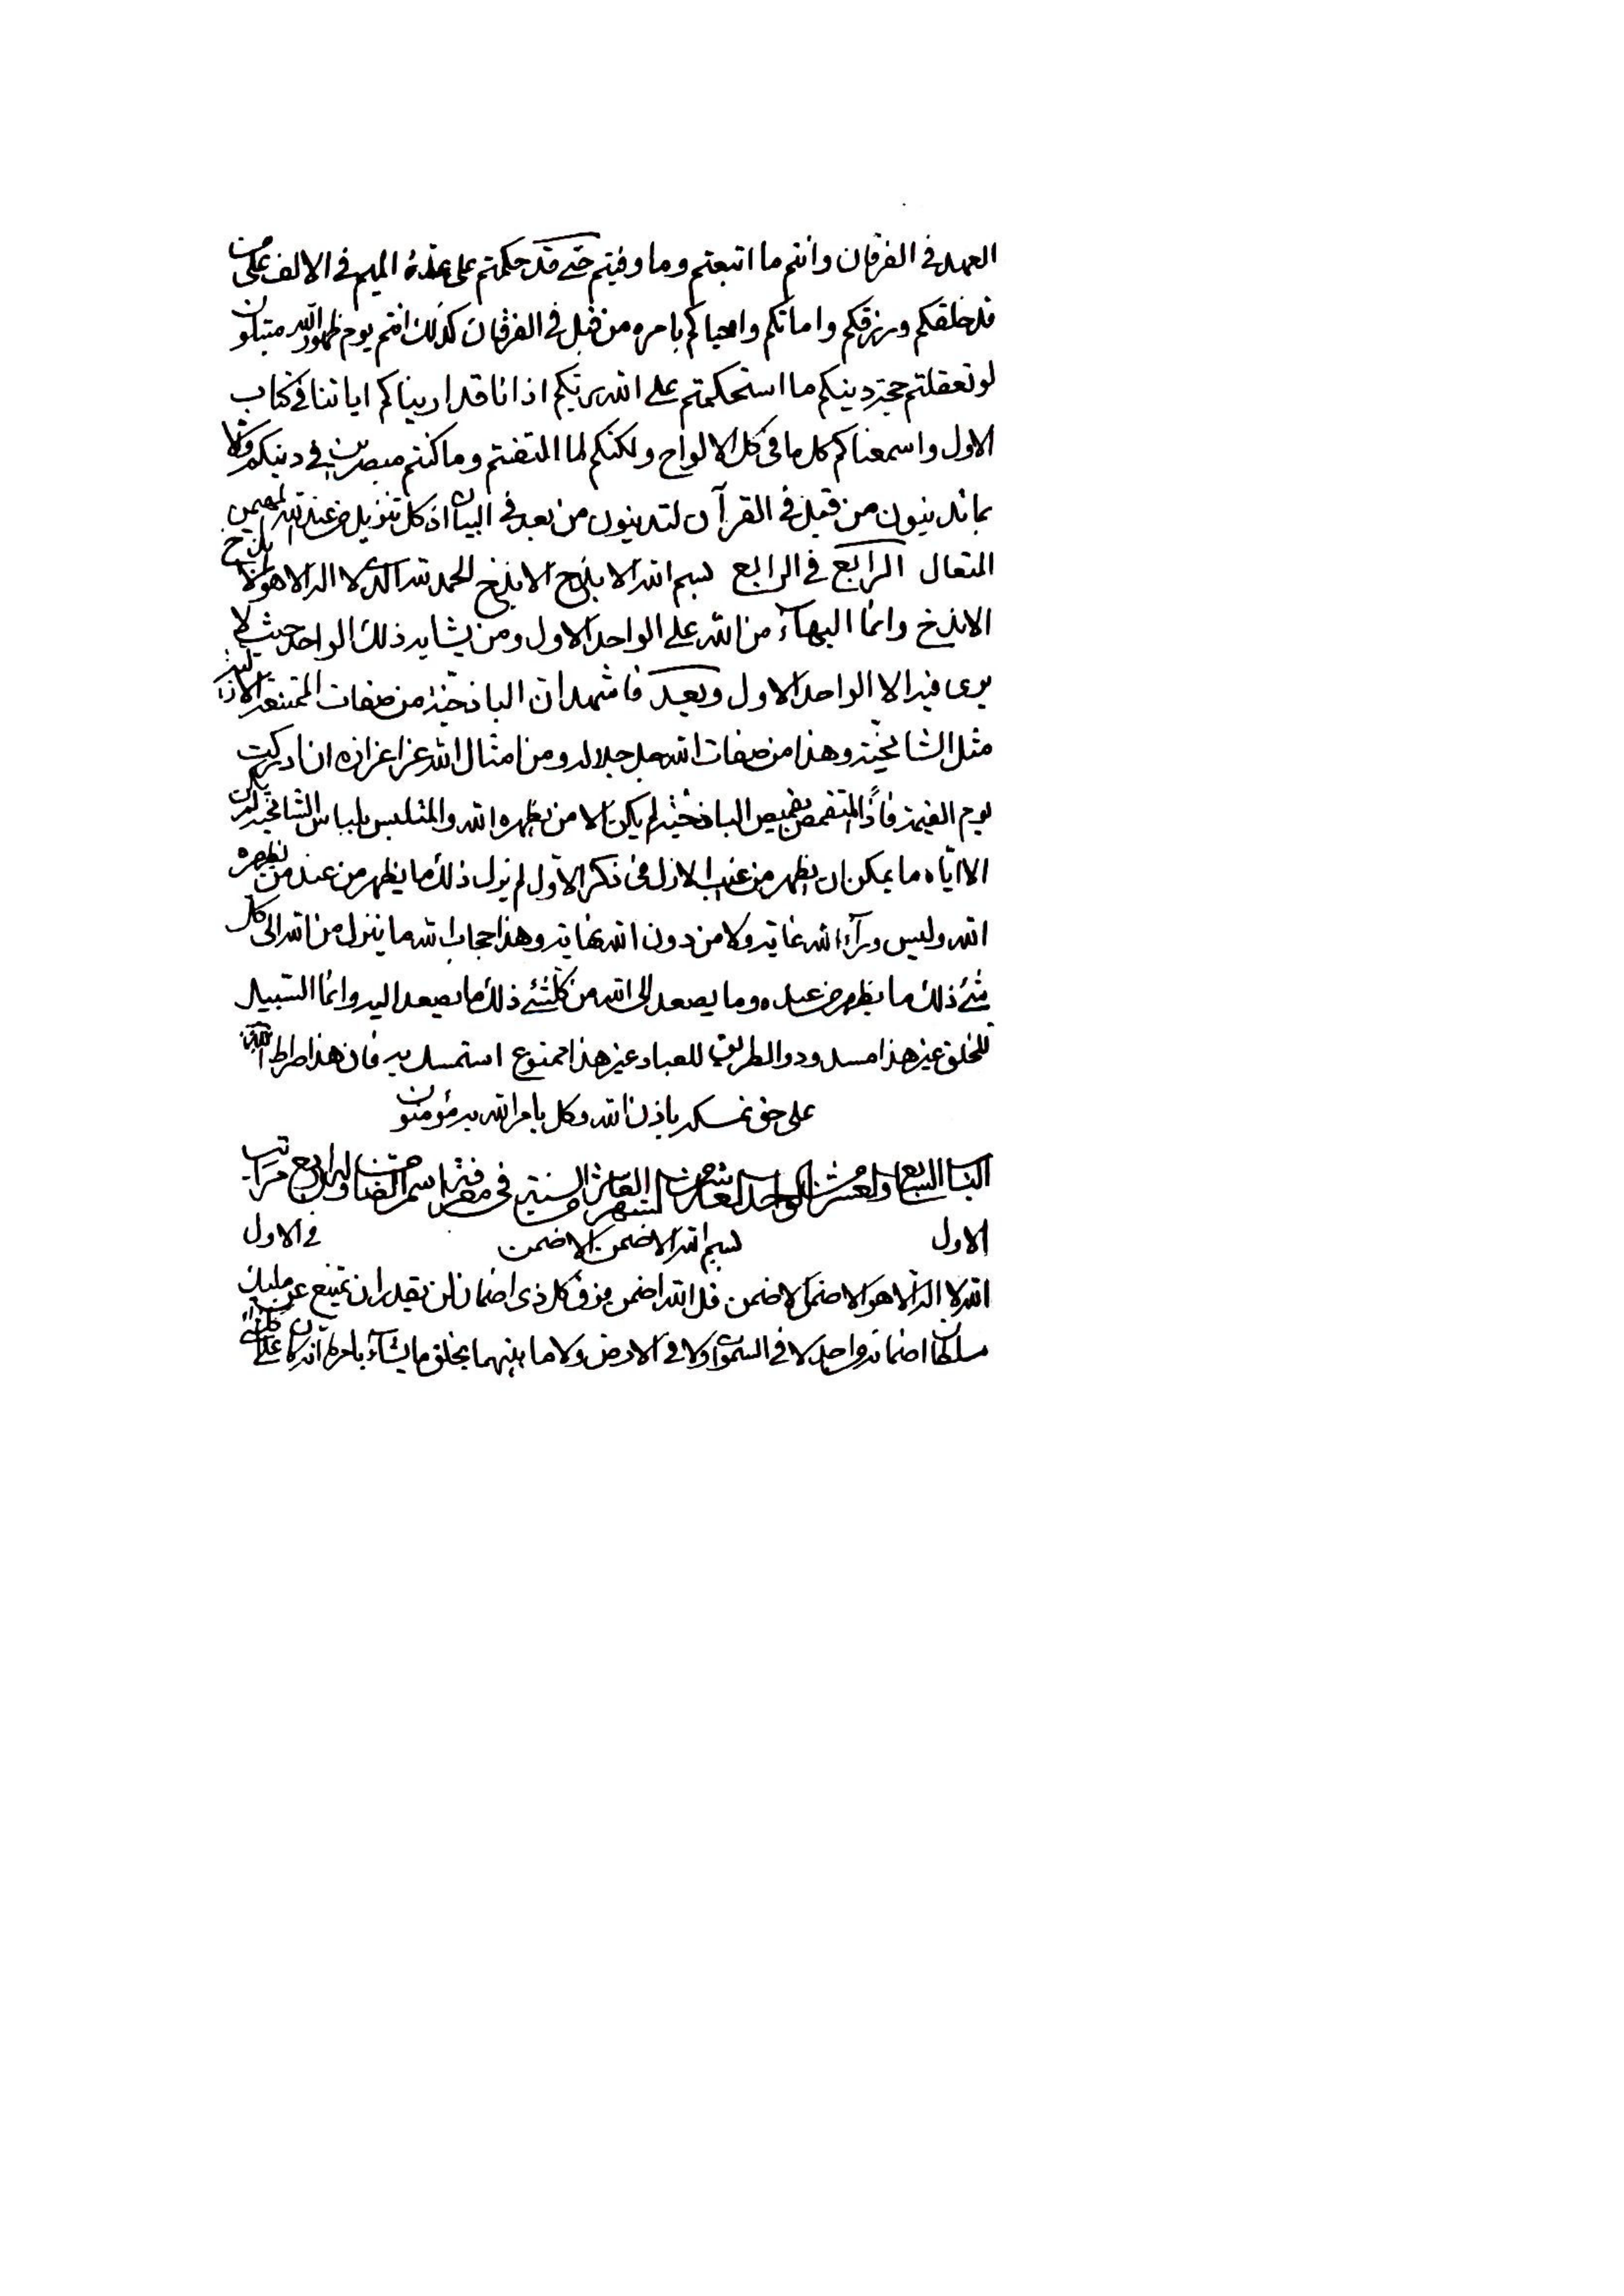 العهد في الفرقان وانتم ما اتبعتم وما وفيتم حتى قد حكمتم على هذه الميم في الالف على من
قد خلقكم ورزقكم واماتكم واحياكم بامره من قبل في الفرقان كذلك انتم يوم ظهور الله مبتلون
لو تعقلتم حجة دينكم ما استحكمتم على الله ربكم اذ انا قد اريناكم اياتنا في كتاب
الاول واسمعناكم كل ما في كل الالواح ولكنكم لما التفتم وما كنتم مبصرين في دينكم
بما تدينون من قبل في القرآن لتدينون من بعد في البيان اذ كل تنزيل من عند الله المهيمن
المتعال الرابع في الرابع بسم الله الابذخ الابذخ الحمد لله الذي لا اله الا هو الابذخ
الابذخ وانما البهآء من الله على الواحد الاول ومن يشابه ذلك الواحد حيث لا
يرى فيه الا الواحد الاول وبعد فاشهد ان الباذخية من صفات الممتنعة
مثل الشامخية وهذا من صفات الله جل جلاله ومن امثال الله عز اعزازه ان ادركت
يوم القيمة فاذا المتقمص بقميص الباذخية لم يكن الا من يظهره الله والمتلبس بلباس الشامخية لم يكن
الا اياه ما يمكن ان يظهر من غيب الازل في ذكر الاول لم يزل ذلك ما يظهر من عند من يظهره
الله وليس ورآء الله غاية ولا من دون الله نهاية وهذا حجاب الله ما ينزل من الله الى كل
شئ ذلك ما يظهر من عبده وما يصعد الى الله من كلشئ ذلك ما يصعد اليه وانما السبيل
للخلق غير هذا مسدود والطريق للعباد غير هذا ممنوع استمسك به فان هذا صراط الله
على حق تمسك به باذن الله وكل بامر الله به مؤمنون
الباب السابع والعشر من الواحد العاشر من الشهر العاشر من السنة في معرفة اسم الضامن وله اربع مراتب
الاول بسم الله الاضمن الاضمن في الاول
الله لا اله الا هو الاضمن الاضمن قل الله اضمن فوق كل ذي اضمان لن يقدر ان يمتنع عن مليك
سلطان اضمانه من احد لا في السموات ولا في الارض ولا ما بينهما يخلق ما يشآء بامره انه كان على كلشئ